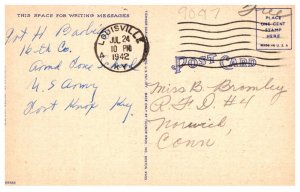 THIS SPACE FOR WRITING MESSAGES
9047 Free
Pvt H
16th Co.
Armd Force
U S Army
Fort Knox Ky.
LOUISVILLE
JUL 24
10 PM
1942
KY.
PLACE
ONE CENT
STAMP
HERE
MADE IN U.S.A.
POST CARD
Miss B. Bromley
R. F. D. #4
Norwich,
Conn